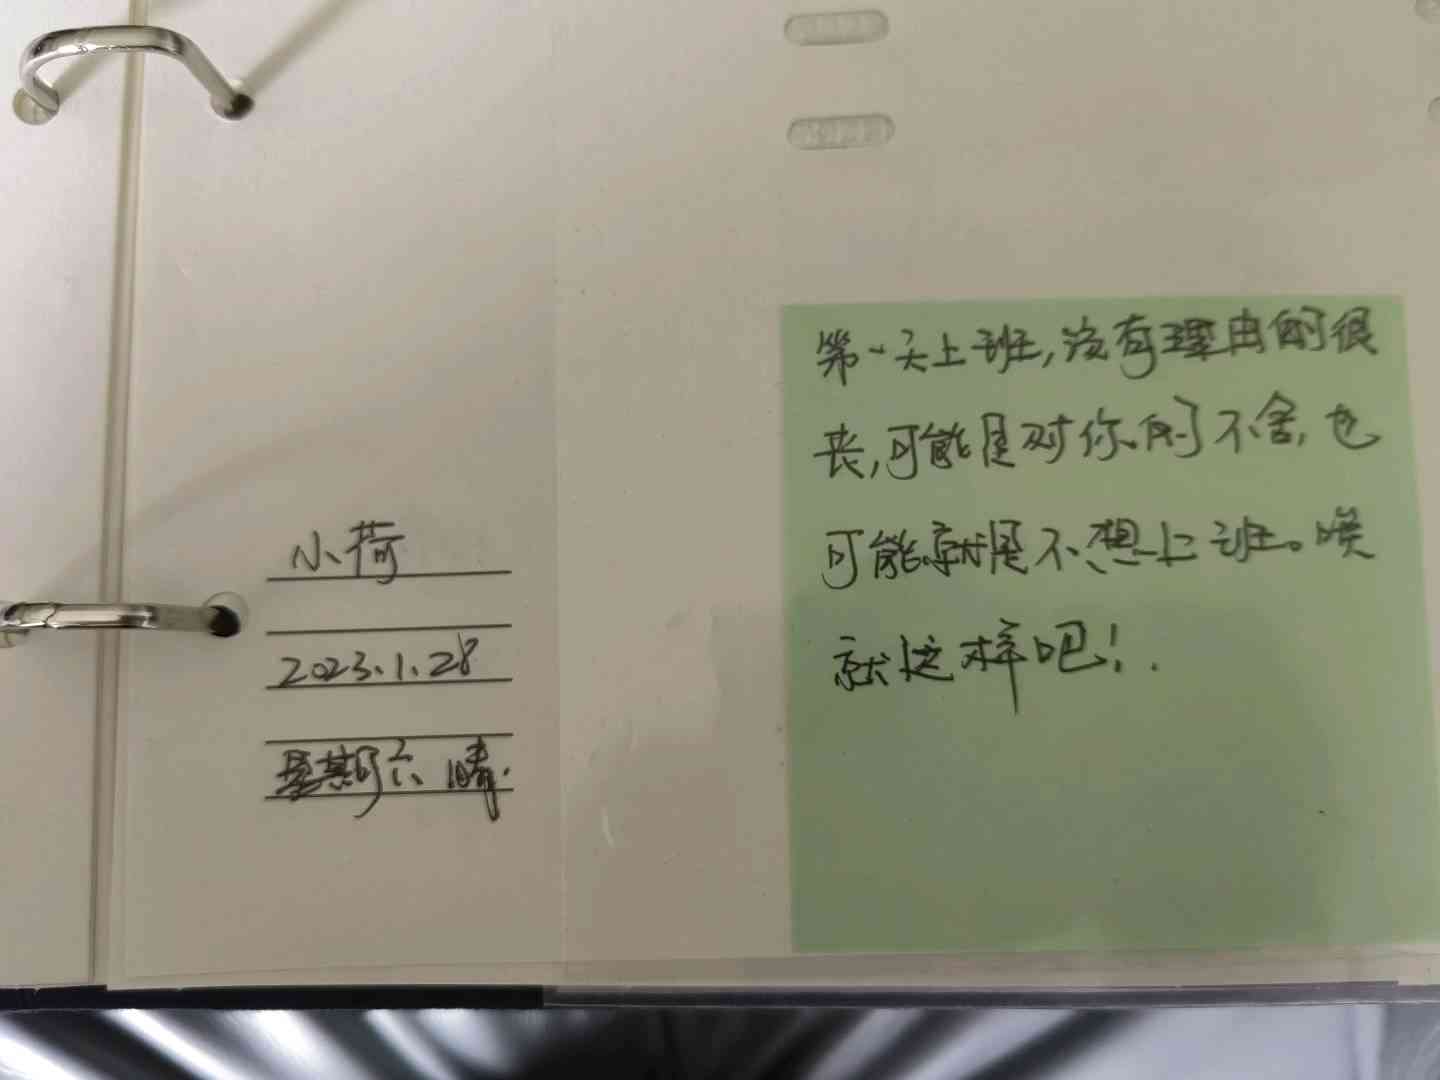 小荷
2023.1.28
星期六 晴.
第一天上班,没有理由的很
丧,可能是对你的不舍,也
可能就是不想上班。唉
就这样吧!.